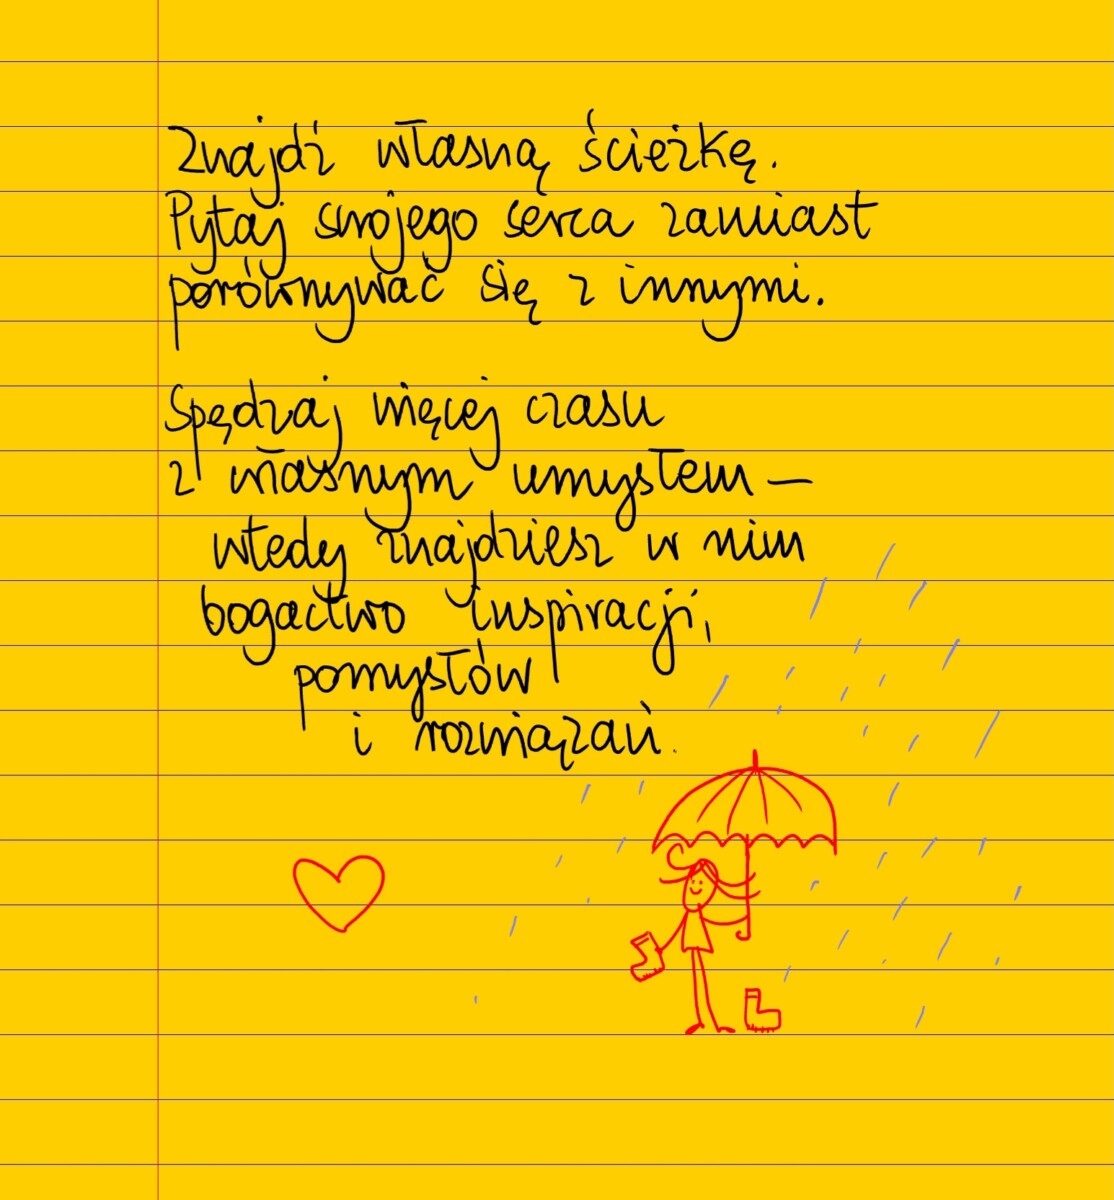 Znajdź własną ścieżkę.
Pytaj swojego serca zamiast
porównywać się z innymi.
Spędzaj więcej czasu
z własnym umysłem —
wtedy znajdziesz w nim
bogactwo inspiracji,
pomysłów
i rozwiązań.